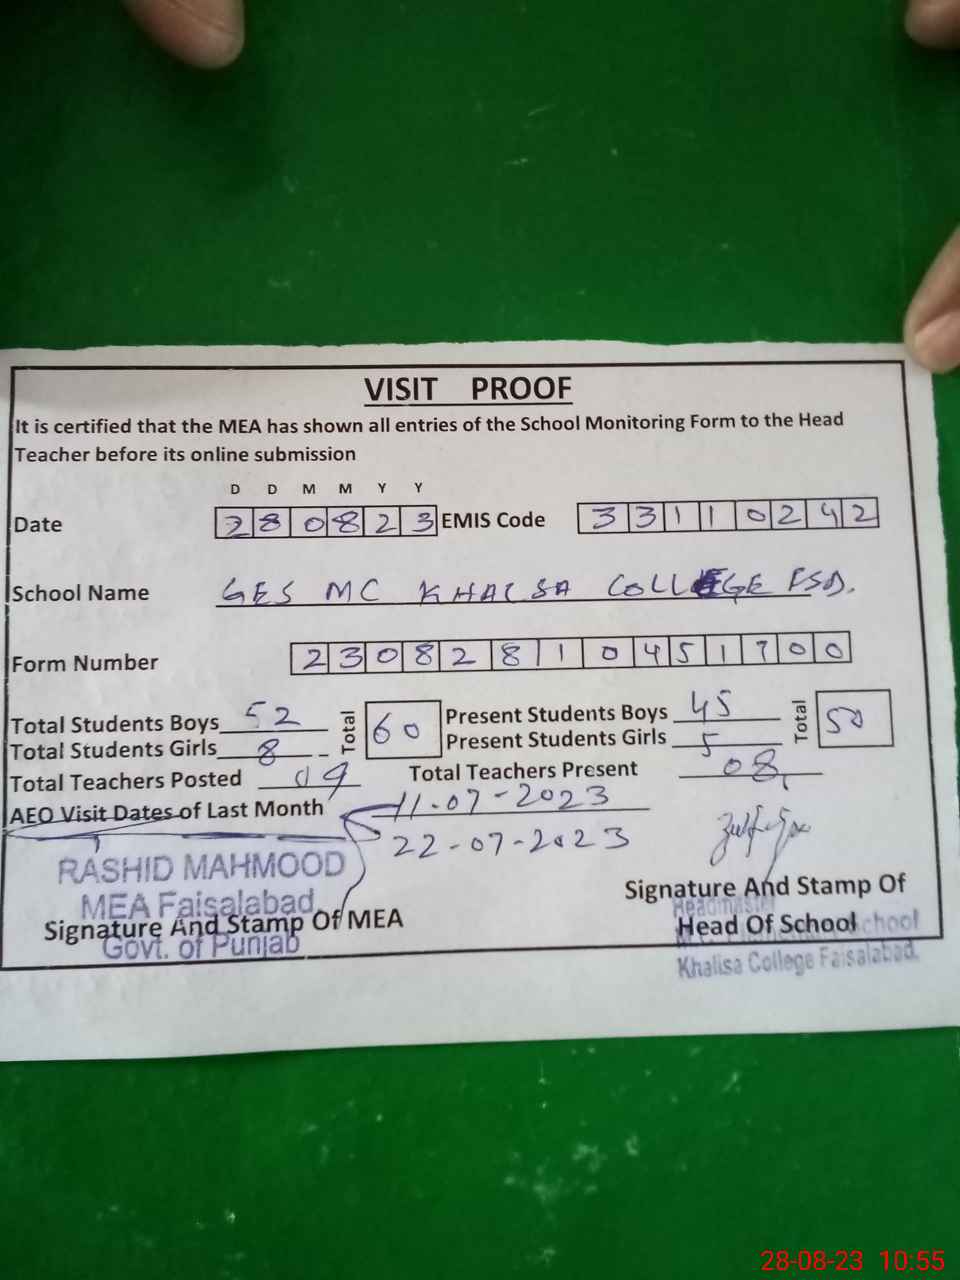 VISIT PROOF
It is certified that the MEA has shown all entries of the School Monitoring Form to the Head
Teacher before its online submission
D D M M Y Y
Date 280823 EMIS Code 33110242
School Name GES MC KHALSA COLLEGE FSD.
Form Number 23082810451700
Total Students Boys 52 Total 60 Present Students Boys 45 Total 50
Total Students Girls 8 Present Students Girls 5
Total Teachers Posted 09 Total Teachers Present 08
AEO Visit Dates of Last Month 11-07-2023
22-07-2023
RASHID MAHMOOD
MEA Faisalabad
Signature And Stamp Of MEA
Govt. of Punjab
Signature And Stamp Of
Headmaster
Head Of School
School
Khalisa College Faisalabad.
28-08-23 10:55